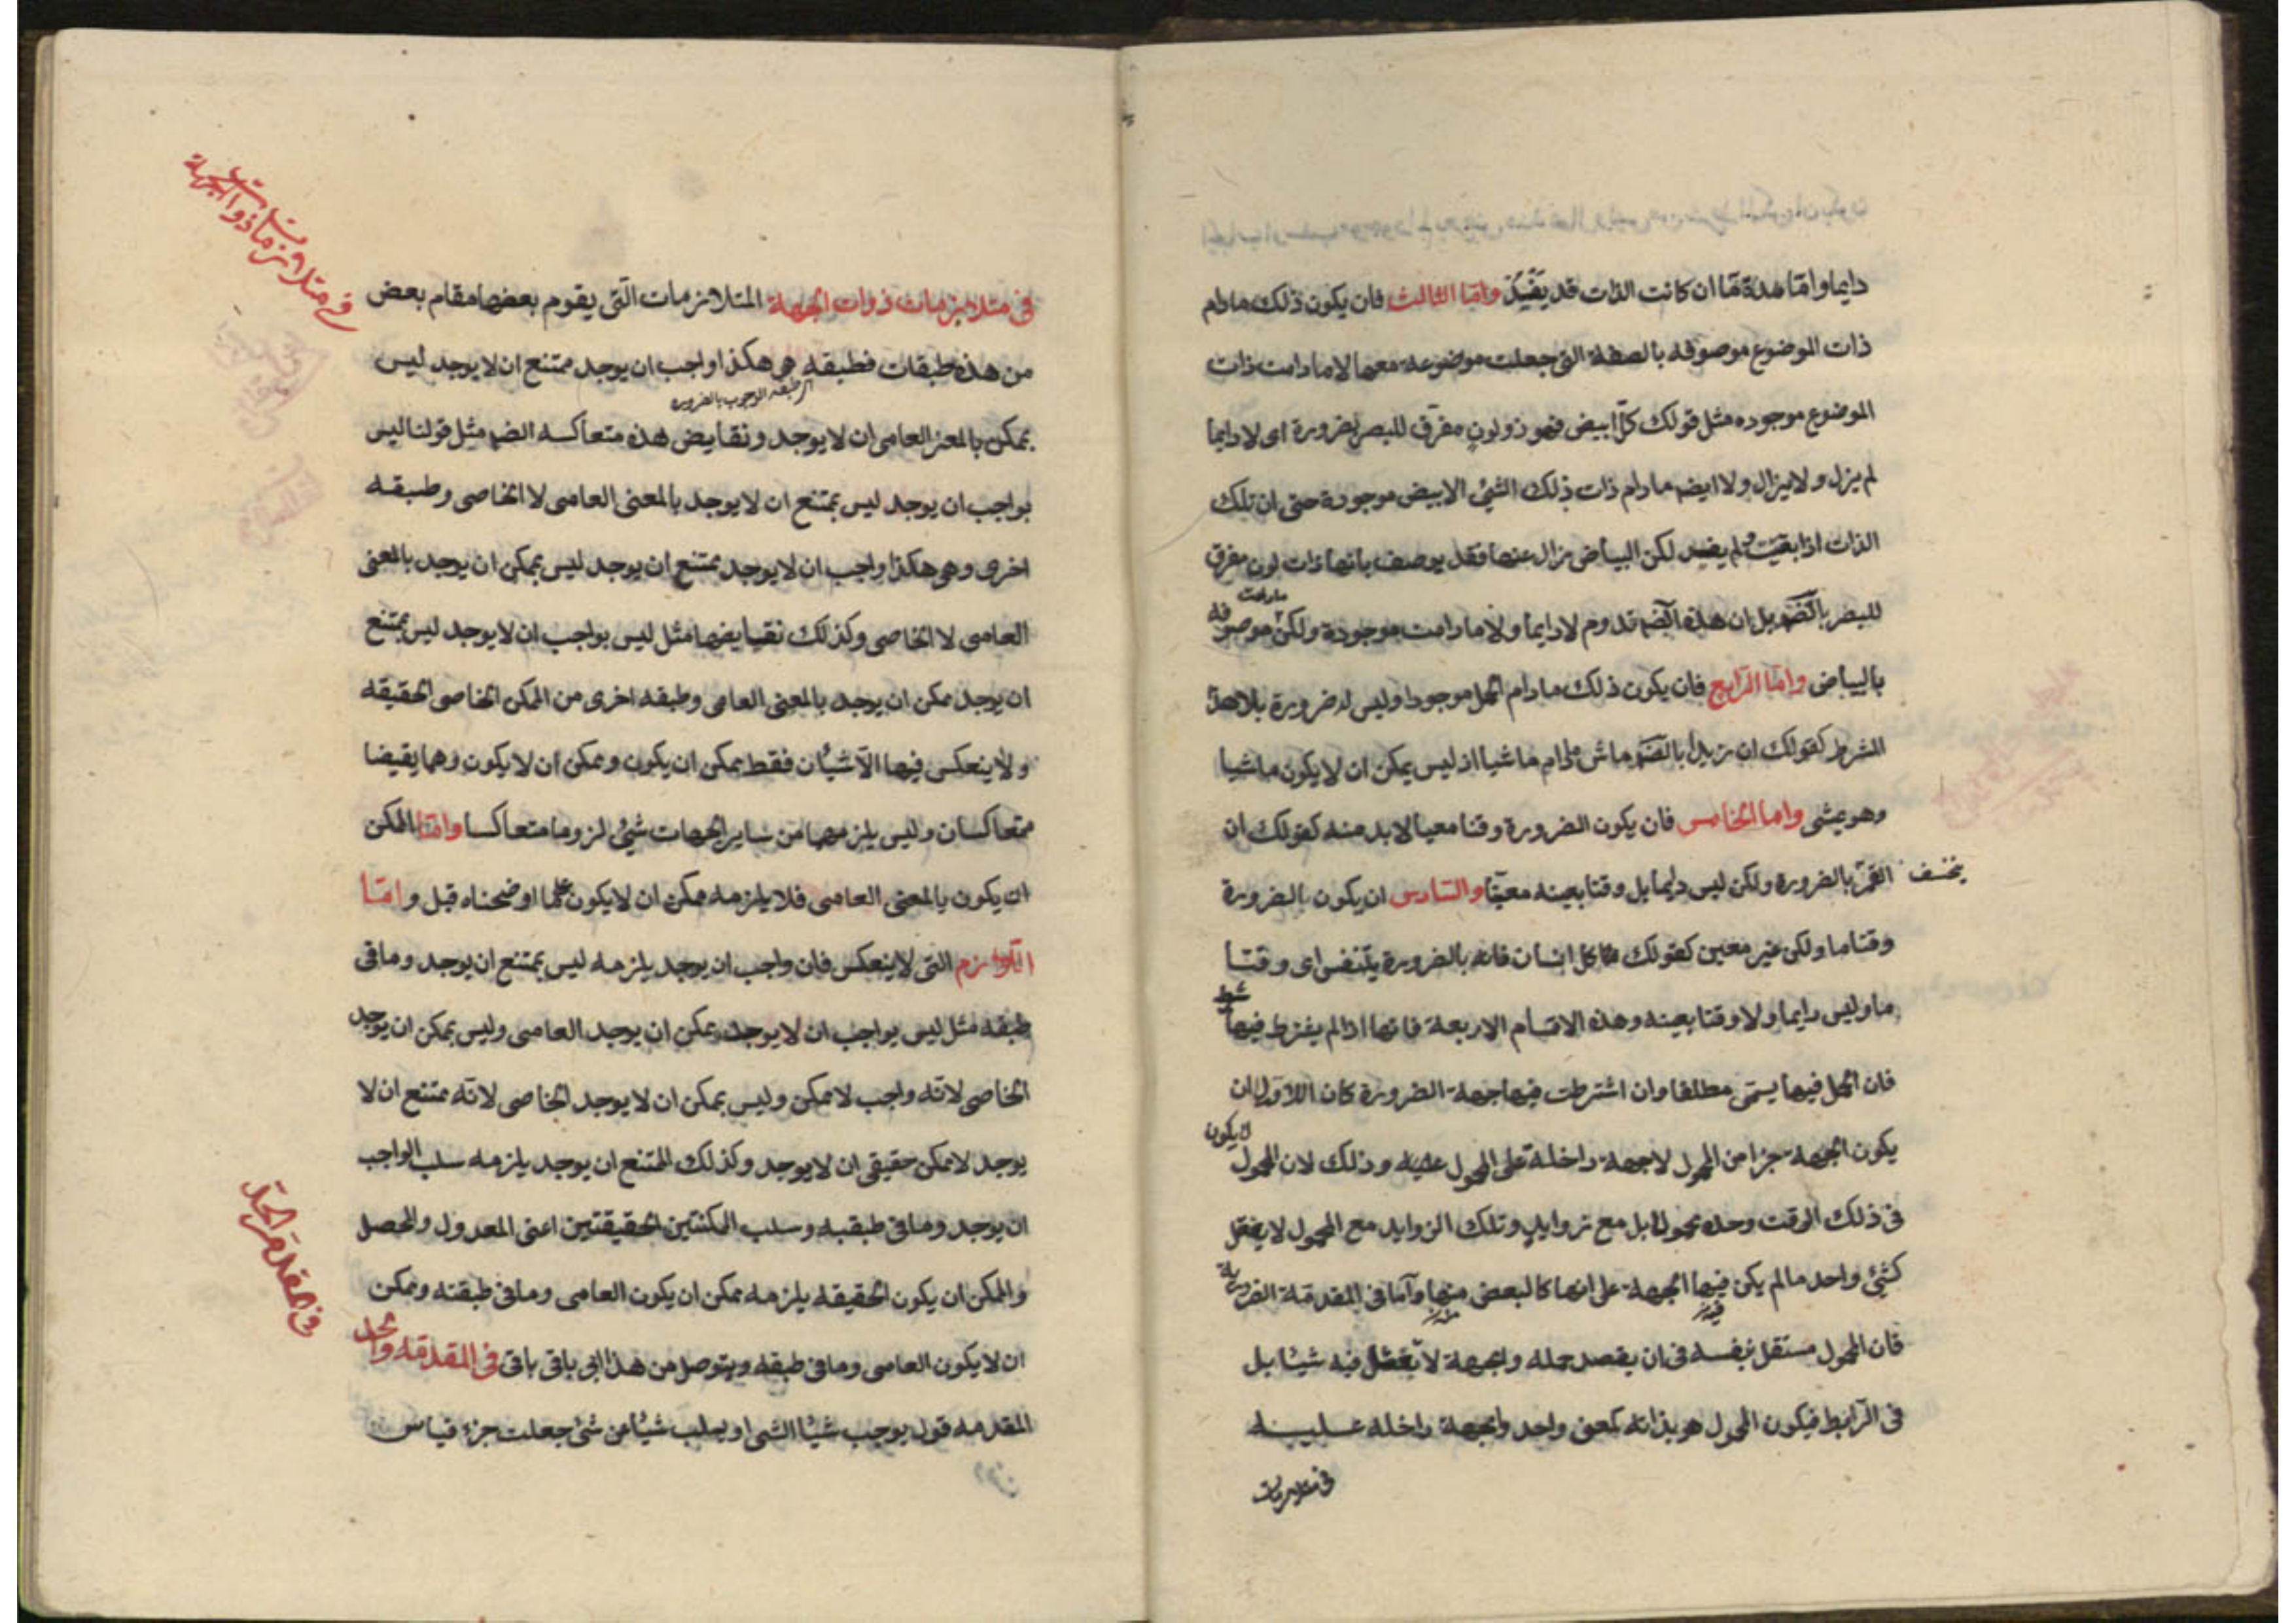 دايما واما مدة ما ان كانت الذات قد يفسد واما الثالث فان يكون ذلك مادام
ذات الموضوع موصوفه بالصفة التى جعلت موضوعة معها لا ما دامت ذات
الموضوع موجوده مثل قولك كل ابيض فهو ذو لون مفرق للبصر بضرورة اى لا دايما
لم يزل ولا يزال ولا ايضم مادام ذات ذلك الشئ الابيض موجودة حتى ان تلك
الذات اذا بقيت ولم يفسد لكن البياض زال عنها فقد يوصف بانها ذات لون مفرق
للبصر بالضم بل ان هذه الضم تدوم لا دايما ولا ما دامت موجودة ولكن مادامت موصوفه
بالبياض واما الرابع فان يكون ذلك مادام الحمل موجودا وليس له ضرورة بلا هذا
الشرط كقولك ان زيدا بالضم ماش مادام ماشيا اذ ليس يمكن ان لا يكون ماشيا
وهو يمشى واما الخامس فان يكون الضرورة وقتا معينا لا بد منه كقولك ان
القمر ينخسف بالضرورة ولكن ليس دايما بل وقتا بعينه معينا والسادس ان يكون بالضرورة
وقتا ما ولكن غير معين كقولك كل انسان فانه بالضرورة يتنفس اى وقتا
ما وليس دايما ولا وقتا بعينه وهذه الاقسام الاربعة فانها اذا لم يشترط فيها شرط
فان الحمل فيها يسمى مطلقا وان اشترطت فيها جهة الضرورة كان الاولى ان
يكون الجهة جزا من المحمول لا جهة داخلة على المحمول عليه وذلك لان المحمول لا يكون
فى ذلك الوقت وحده محمولا بل مع زوايد وتلك الزوايد مع المحمول لا يفعل
كشئ واحد ما لم يكن فيها الجهة على انها كالبعض منها واما فى المقدمة الضرورية
فان المحمول مستقل بنفسه فى ان يقصد حمله والجهة لا تفعل فيه شيئا بل
فى الرابط فيكون المحمول هو بذاته كمعنى واحد والجهة داخلة عليه
فى متلازمات
فى متلازمات ذوات الجهة
فى متلازمات ذوات الجهة المتلازمات التى يقوم بعضها مقام بعض
من هذه طبقات فطبقه هى هكذا واجب ان يوجد ممتنع ان لا يوجد ليس
يمكن بالمعنى العامى ان لا يوجد ونقايض هذه متعاكسه الضم مثل قولنا ليس
بواجب ان يوجد ليس بممتنع ان لا يوجد بالمعنى العامى لا الخاصى وطبقه
اخرى وهى هكذا واجب ان لا يوجد ممتنع ان يوجد ليس يمكن ان يوجد بالمعنى
العامى لا الخاصى وكذلك نقيايضها مثل ليس بواجب ان لا يوجد ليس بممتنع
ان يوجد ممكن ان يوجد بالمعنى العامى وطبقه اخرى من الممكن الخاصى الحقيقه
ولا ينعكس فيها الا شيئان فقط ممكن ان يكون وممكن ان لا يكون وهما يقيضا
متعاكسان وليس يلزمهما من ساير الجهات شئ لزوما متعاكسا واما الممكن
ان يكون بالمعنى العامى فلا يلزمه ممكن ان لا يكون على ما اوضحناه قبل واما
اللوازم التى لا ينعكس فان واجب ان يوجد يلزمه ليس بممتنع ان يوجد وما فى
طبقه مثل ليس بواجب ان لا يوجد ممكن ان يوجد العامى وليس يمكن ان يوجد
الخاصى لانه واجب لا ممكن وليس يمكن ان لا يوجد الخاصى لانه ممتنع ان لا
يوجد لا ممكن حقيقى ان لا يوجد وكذلك الممتنع ان يوجد يلزمه سلب الواجب
ان يوجد وما فى طبقه وسلب الممكنتين الحقيقتين اعنى المعدول والمحصل
والممكن ان يكون الحقيقه يلزمه ممكن ان يكون العامى وما فى طبقته وممكن
ان لا يكون العامى وما فى طبقه ويتوصل من هذا الى باقى باقى فى المقدمه والحد
المقدمه قول يوجب شيئا لشى او يسلب شيئا من شئ جعلت جزء قياس
فى المقدمة والحد